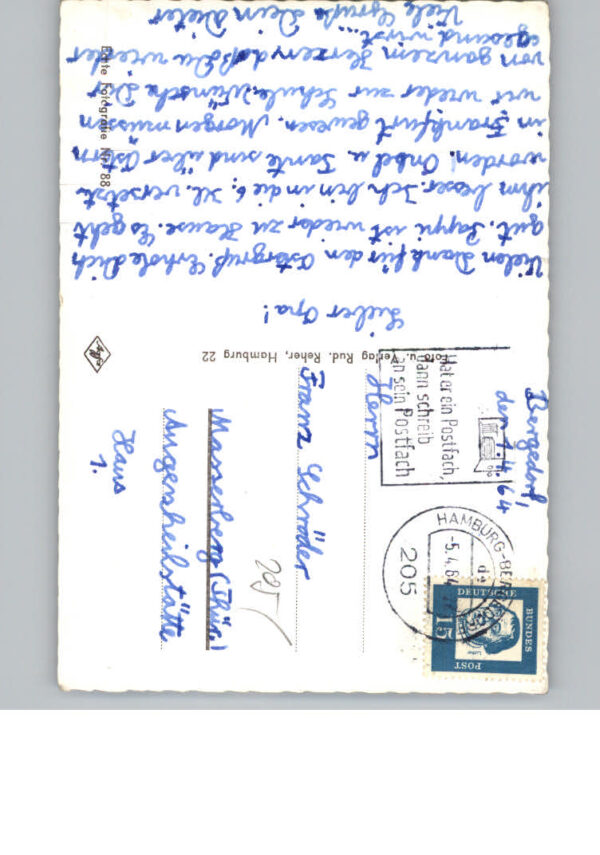 Bergedorf,
den 1.4.64
Lieber Opa!
Vielen Dank für den Ostergruß. Erhole Dich
gut. Pappi ist wieder zu Hause. Es geht
ihm besser. Ich bin in die 6. Kl. versetzt
worden. Onkel u. Tante sind über Ostern
in Frankfurt gewesen. Morgen müssen
wir wieder zur Schule. Wünsche Dir
von ganzem Herzen daß Du wieder
gesund wirst...
Viele Grüße Dein Dieter
Echte Fotografie Nr. 88
Foto u. Verlag Rud. Reher, Hamburg 22
Agfa
Hat er ein Postfach,
dann schreib
an sein Postfach
HAMBURG-BERGEDORF
-5.4.64
205
DEUTSCHE
BUNDES
POST
15
Luther
Herrn
Franz Schröder
Masserberg (Thür.)
Augenheilstätte
Haus
1.
205